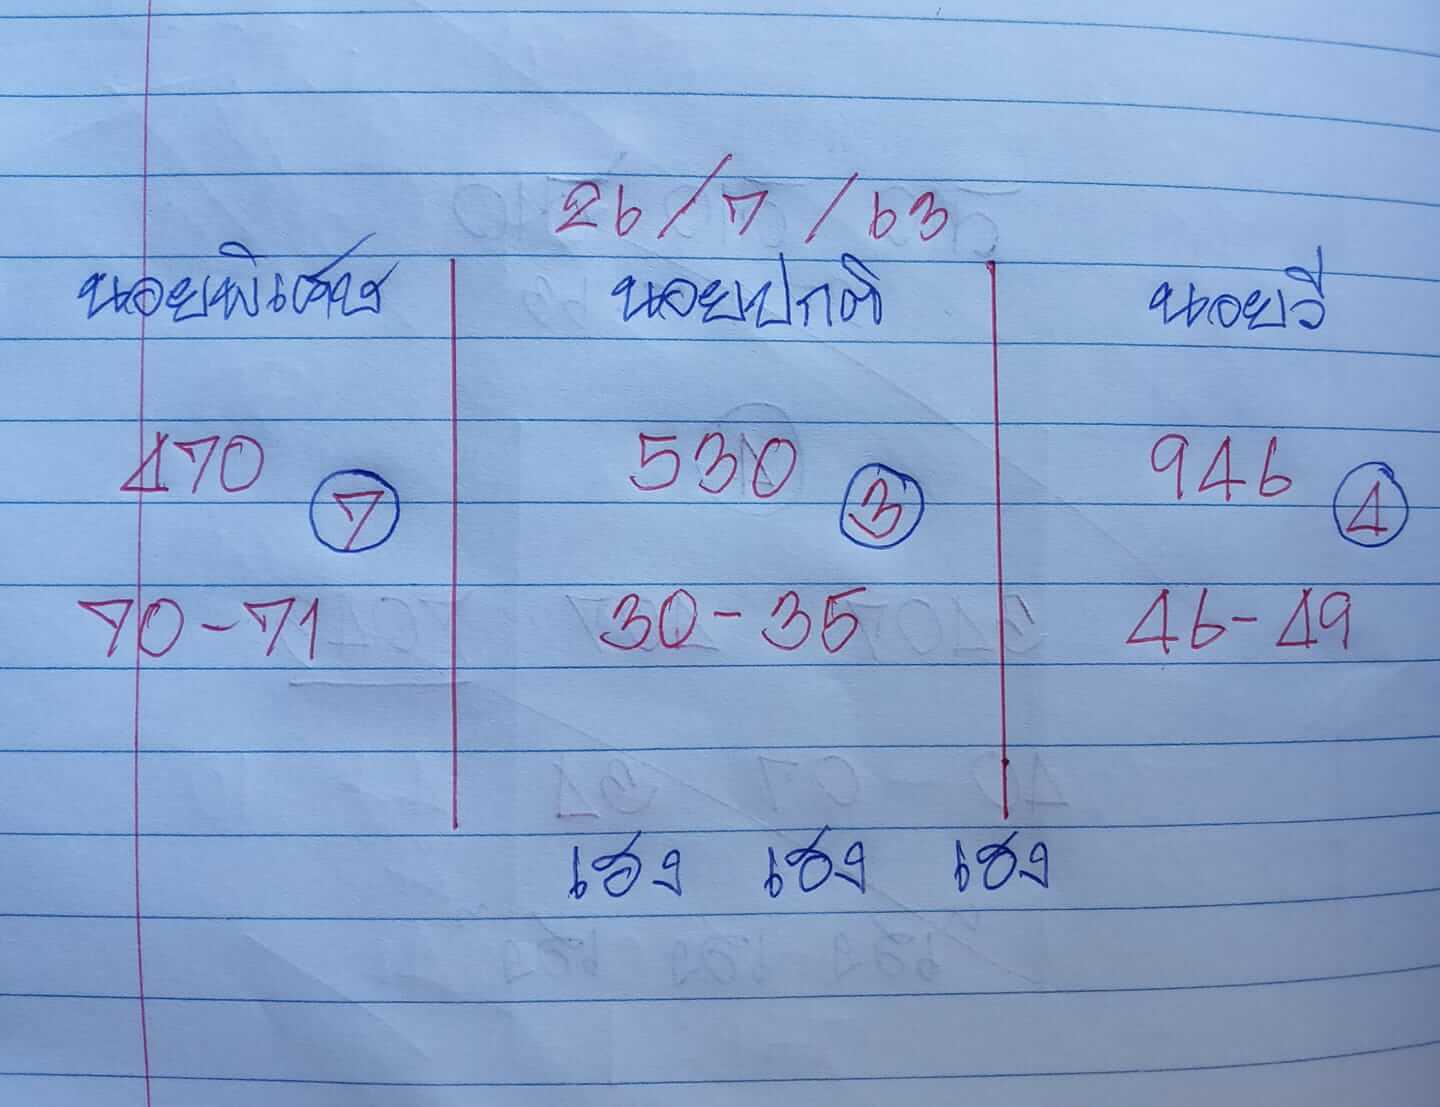 26/7/63
นอยพิเศษ นอยปกติ นอยวี
470 7 530 3 946 4
70-71 30-35 46-49
เฮง เฮง เฮง